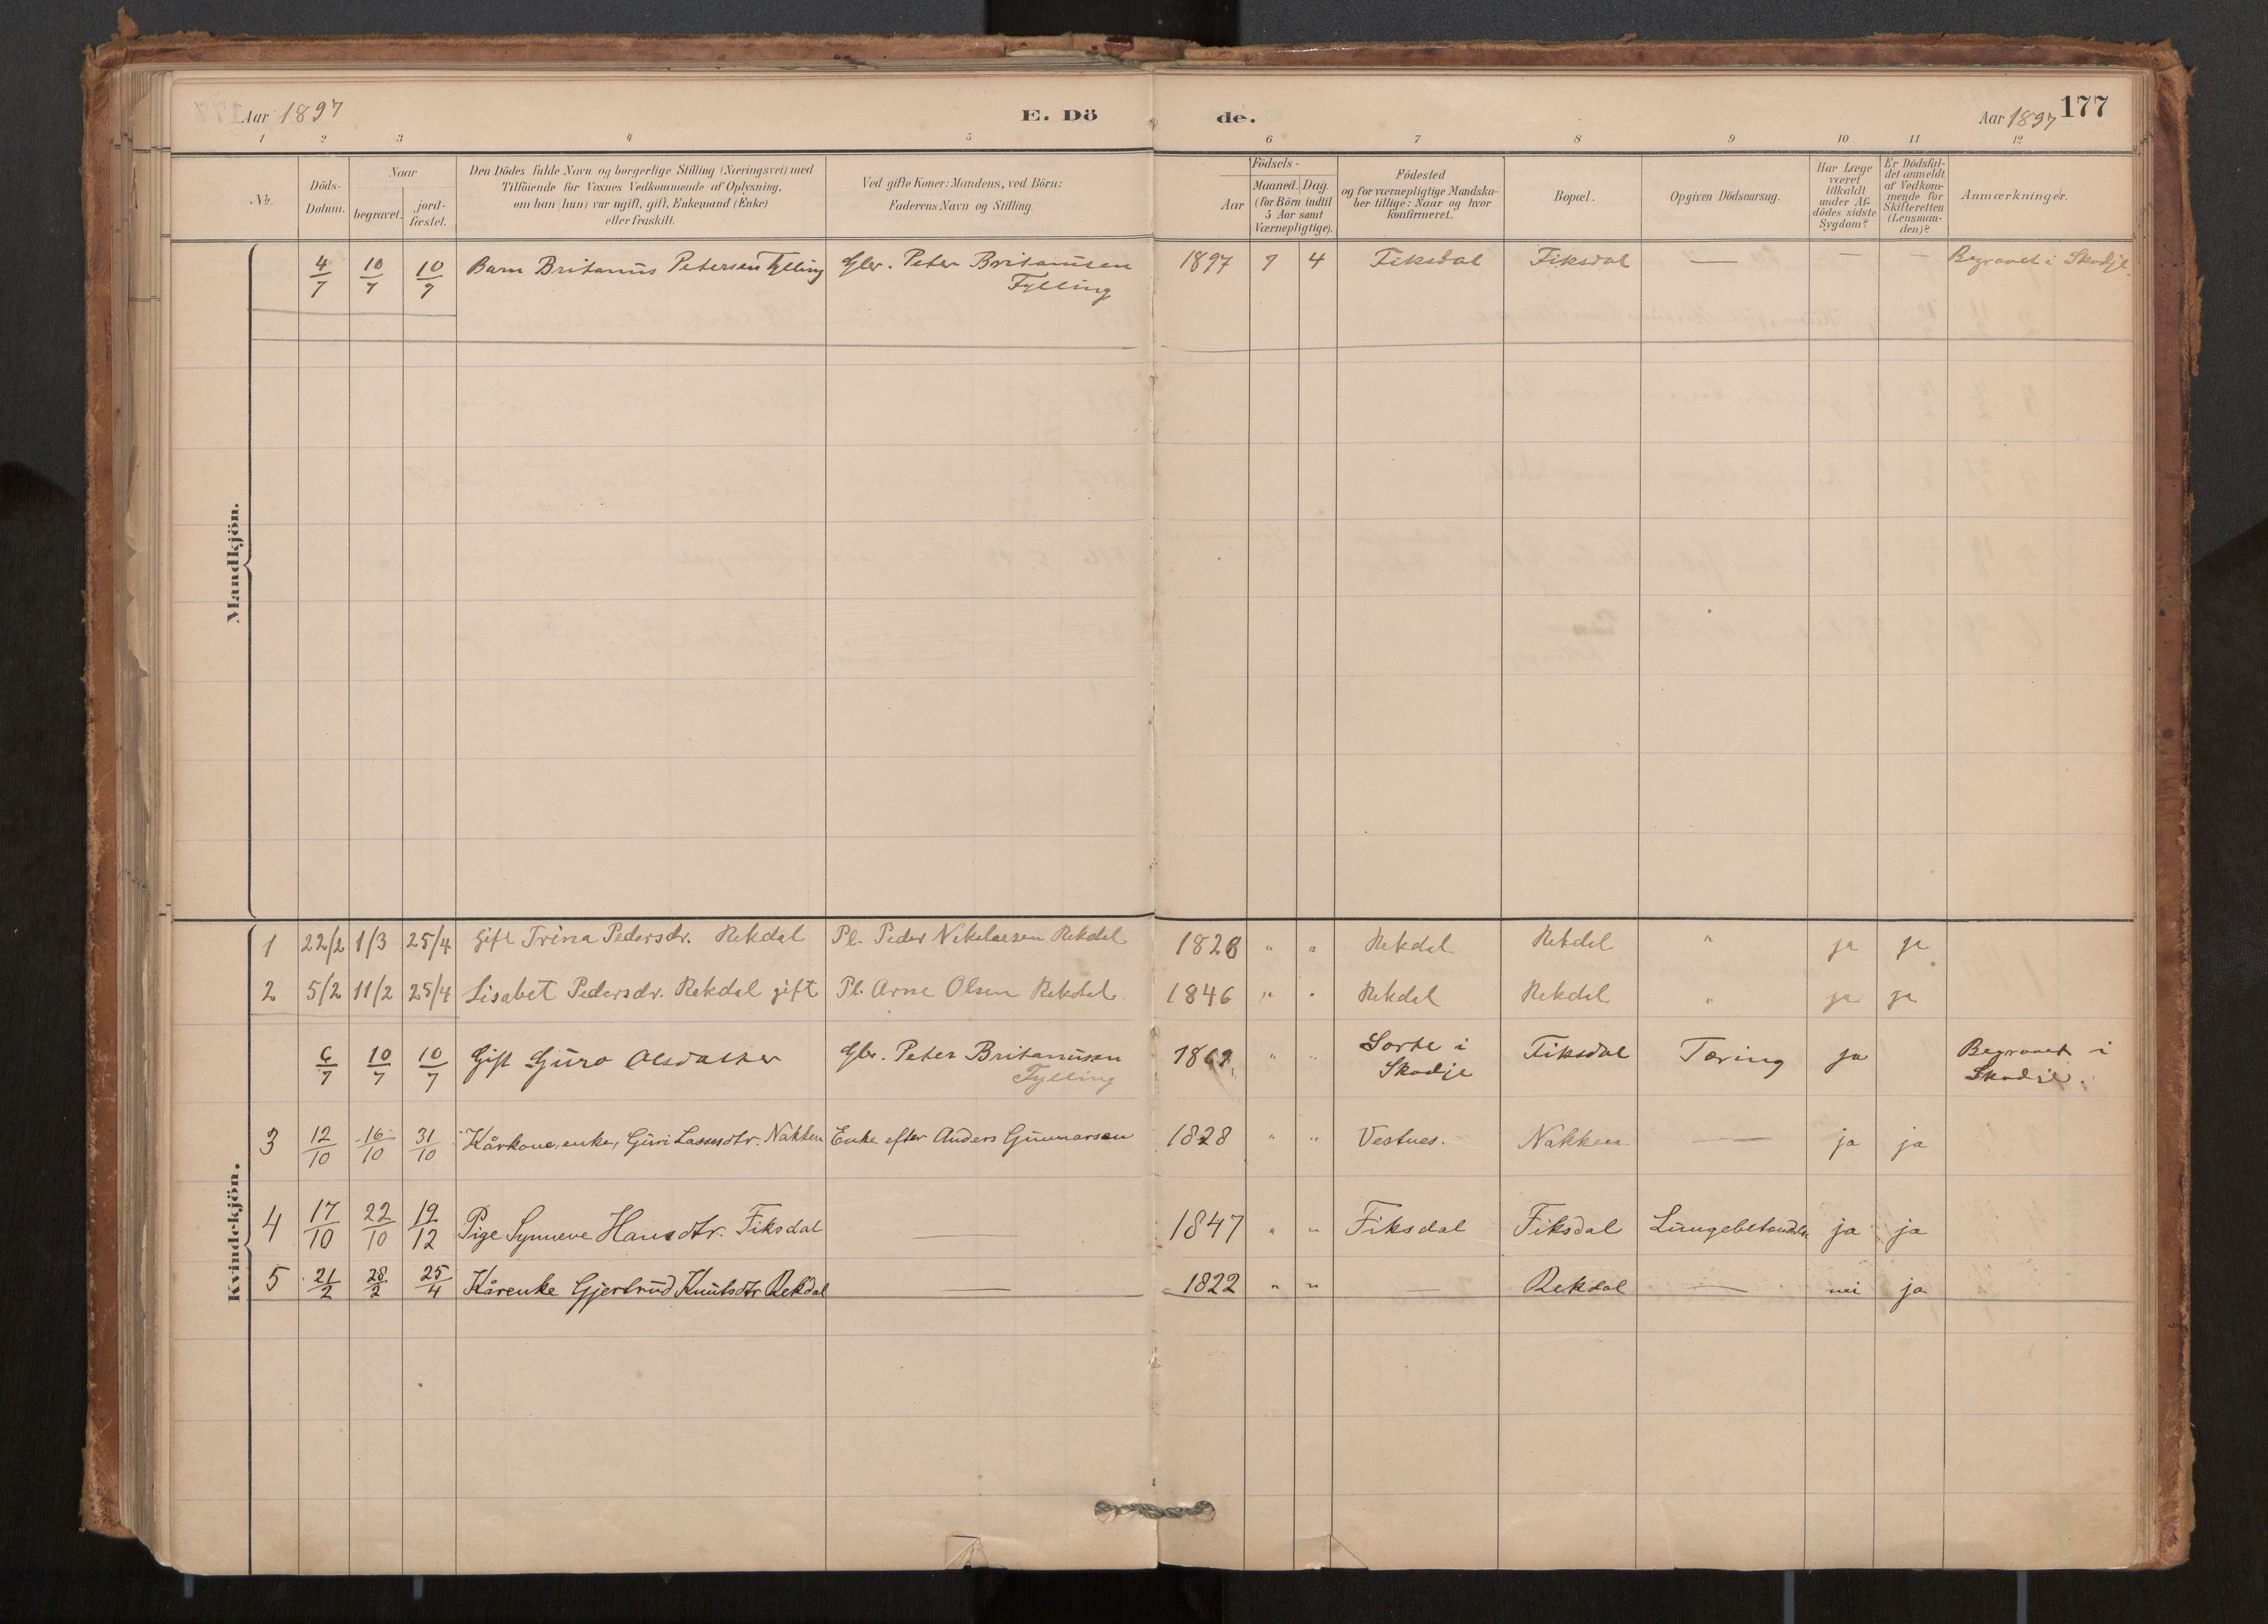 Aar 1897 E. Dö de. Aar 1897 177
1 2 3 4 5 6 7 8 9 10 11 12
No. Döds-Datum. Naar begravet. jord-fæstet. Den Dödes fulde Navn og borgerlige Stilling (Næringsvei) med
Tilföiende for Voxnes Vedkommende af Oplysning,
om han (hun) var ugift, gift, Enkemand (Enke)
eller fraskilt.
Ved gifte Koner: Mandens, ved Börn:
Faderens Navn og Stilling.
Födsels-
Aar Maaned. Dag.
(for Börn indtil
5 Aar samt
Værnepligtige).
Födested
og for værnepligtige Mandska-
ber tillige: Naar og hvor
konfirmeret.
Bopæl.
Opgiven Dödsaarsag.
Har Læge
været
tilkaldt
under Af-
dödes sidste
Sygdom?
Er Dödsfal-
det anmeldt
af Vedkom-
mende for
Skifteretten
(Lensman-
den)?
Anmærkninger.
Mandkjön.
4/7 10/7 10/7 Barn Britanus Petersen Fylling Gbr. Peter Britanusen 1897 7 4 Fiksdal Fiksdal — — — Begravet i Skodje.
Fylling
Kvindekjön.
1 22/2 1/3 25/4 gift Trina Pedersdr. Rekdal Pl. Peder Nikolaesen Rekdal 1828 " " Rekdal Rekdal " ja ja
2 5/2 11/2 25/4 Lisabet Pedersdr. Rekdal gift Pl. Arne Olsen Rekdal. 1846 " " Rekdal Rekdal " ja ja
6/7 10/7 10/7 Gift Guro Olsdatter Gbr. Peter Britanusen 1869 " " Sorte i Fiksdal Tæring ja Begravet i
Fylling Skodje Skodje.
3 12/10 16/10 31/10 Kårkone, enke, Guri Lassesdtr. Nakken Enke efter Anders Gunnarsen 1828 " " Vestnes. Nakken — ja ja
4 17/10 22/10 19/12 Pige Synneve Hansdtr. Fiksdal — 1847 " " Fiksdal Fiksdal Lungebetændelse ja ja
5 21/2 28/2 25/4 Kårenke Gjertrud Knutsdtr Rekdal — 1822 " " — Rekdal — nei ja